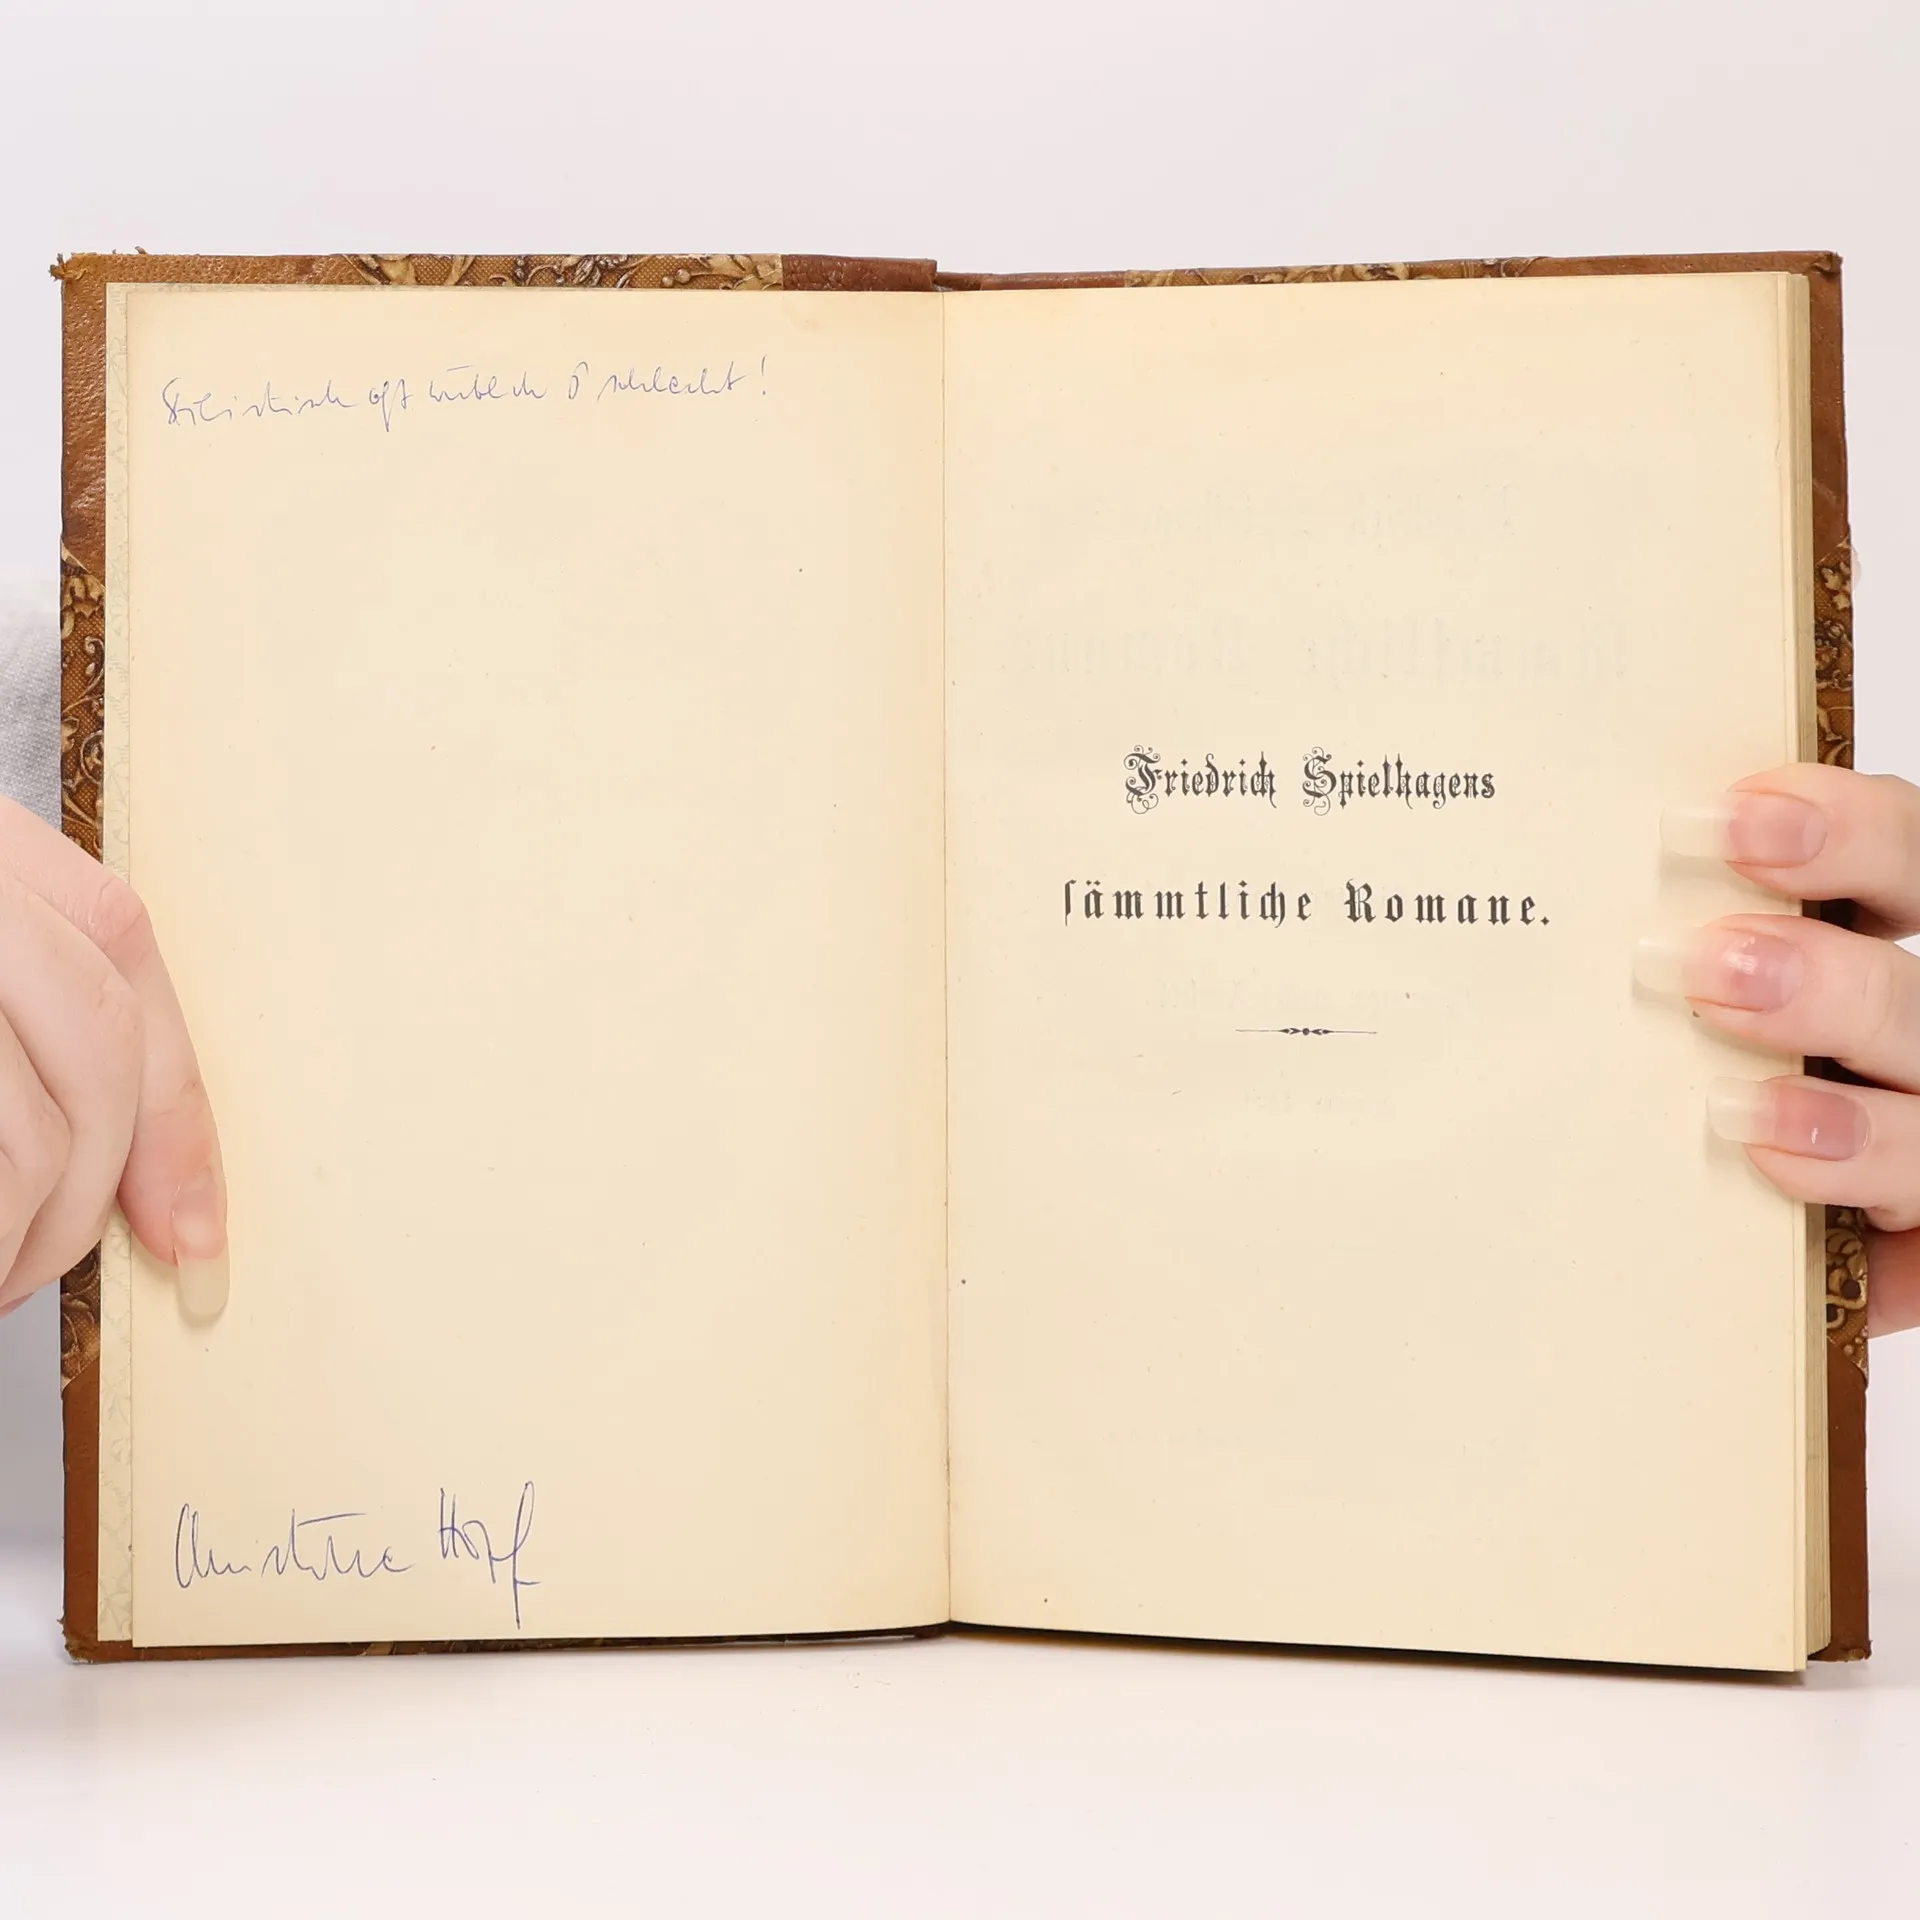 Stilistisch oft wirklich schlecht!
Christine Hopf
Friedrich Spielhagens
sämmtliche Romane.